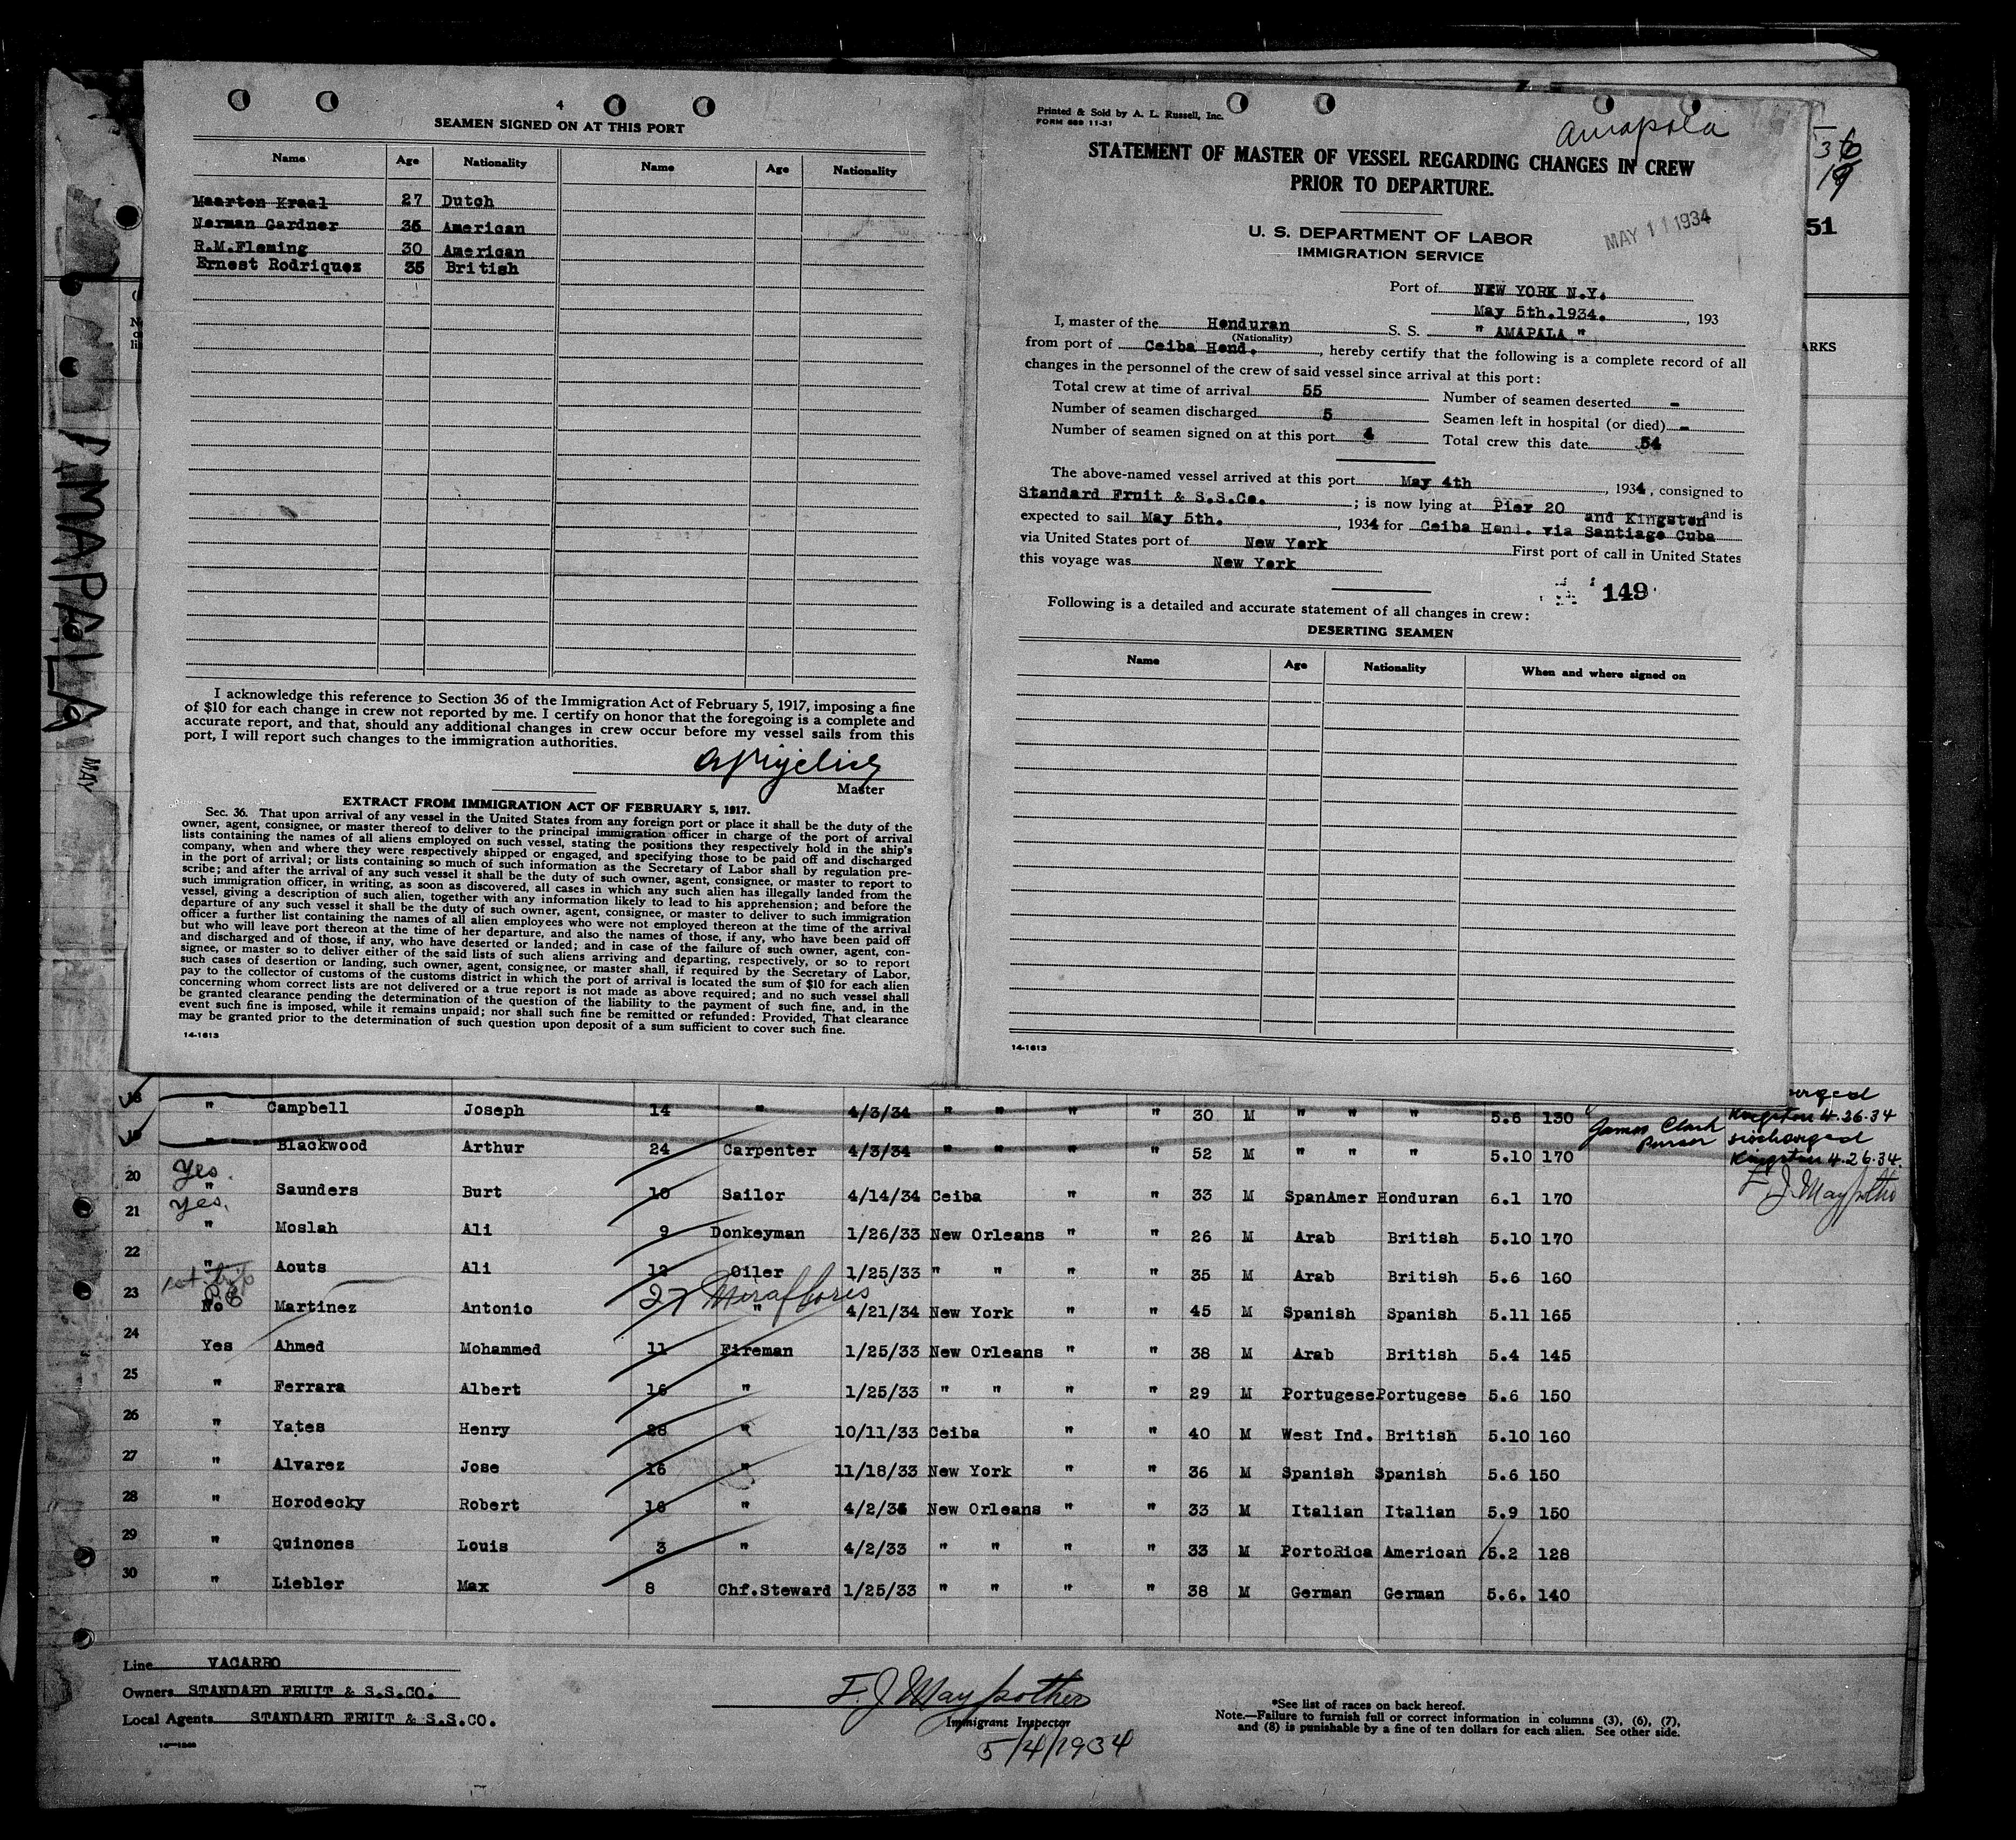 4
SEAMEN SIGNED ON AT THIS PORT
Name Age Nationality Name Age Nationality
Maarten Kraal 27 Dutch
Norman Gardner 35 American
R.M.Fleming 30 American
Ernest Rodriquez 35 British
I acknowledge this reference to Section 36 of the Immigration Act of February 5, 1917, imposing a fine
of $10 for each change in crew not reported by me. I certify on honor that the foregoing is a complete and
accurate report, and that, should any additional changes in crew occur before my vessel sails from this
port, I will report such changes to the immigration authorities.
Master
EXTRACT FROM IMMIGRATION ACT OF FEBRUARY 5, 1917.
Sec. 36. That upon arrival of any vessel in the United States from any foreign port or place it shall be the duty of the
owner, agent, consignee, or master thereof to deliver to the principal immigration officer in charge of the port of arrival
lists containing the names of all aliens employed on such vessel, stating the positions they respectively hold in the ship's
company, when and where they were respectively shipped or engaged, and specifying those to be paid off and discharged
in the port of arrival; or lists containing so much of such information as the Secretary of Labor shall by regulation pre-
scribe; and after the arrival of any such vessel it shall be the duty of such owner, agent, consignee, or master to report to
such immigration officer, in writing, as soon as discovered, all cases in which any such alien has illegally landed from the
vessel, giving a description of such alien, together with any information likely to lead to his apprehension; and before the
departure of any such vessel it shall be the duty of such owner, agent, consignee, or master to deliver to such immigration
officer a further list containing the names of all alien employees who were not employed thereon at the time of the arrival
but who will leave port thereon at the time of her departure, and also the names of those, if any, who have been paid off
and discharged and of those, if any, who have deserted or landed; and in case of the failure of such owner, agent, con-
signee, or master so to deliver either of the said lists of such aliens arriving and departing, respectively, or so to report
such cases of desertion or landing, such owner, agent, consignee, or master shall, if required by the Secretary of Labor,
pay to the collector of customs of the customs district in which the port of arrival is located the sum of $10 for each alien
concerning whom correct lists are not delivered or a true report is not made as above required; and no such vessel shall
be granted clearance pending the determination of the question of the liability to the payment of such fine, and, in the
event such fine is imposed, while it remains unpaid; nor shall such fine be remitted or refunded: Provided, That clearance
may be granted prior to the determination of such question upon deposit of a sum sufficient to cover such fine.
14-1613
Printed & Sold by A. L. Russell, Inc.
FORM 689 11-31
Amapala
STATEMENT OF MASTER OF VESSEL REGARDING CHANGES IN CREW
PRIOR TO DEPARTURE.
U. S. DEPARTMENT OF LABOR
IMMIGRATION SERVICE
MAY 11 1934
Port of NEW YORK N.Y.
May 5th.1934. , 193
I, master of the Honduran S. S. " AMAPALA "
(Nationality)
from port of Ceiba Hond. , hereby certify that the following is a complete record of all
changes in the personnel of the crew of said vessel since arrival at this port:
Total crew at time of arrival 55 Number of seamen deserted -
Number of seamen discharged 5 Seamen left in hospital (or died) -
Number of seamen signed on at this port 4 Total crew this date 54
The above-named vessel arrived at this port May 4th , 1934, consigned to
Standard Fruit & S.S.Co. ; is now lying at Pier 20 and is
and Kingston
expected to sail May 5th. , 1934 for Ceiba Hond. via Santiago Cuba
via United States port of New York First port of call in United States
this voyage was New York
149
Following is a detailed and accurate statement of all changes in crew:
DESERTING SEAMEN
Name Age Nationality When and where signed on
14-1613
36
19
51
ARKS
AMAPALA
MAY
18 " Campbell Joseph 14 " 4/3/34 " " " " 30 M " " " 5.6 130 Kingston 4.26.34
James Clark
Purser
discharged
19 " Blackwood Arthur 24 Carpenter 4/3/34 " " " " 52 M " " " 5.10 170 Kingston 4.26.34.
20 Yes. " Saunders Burt 10 Sailor 4/14/34 Ceiba " " 33 M SpanAmer Honduran 6.1 170
21 Yes. " Moslah Ali 9 Donkeyman 1/26/33 New Orleans " " 26 M Arab British 5.10 170
22 " Aouts Ali 12 Oiler 1/25/33 " " " " 35 M Arab British 5.6 160
23 No Martinez Antonio 27 Miraflores " 4/21/34 New York " " 45 M Spanish Spanish 5.11 165
24 Yes Ahmed Mohammed 11 Fireman 1/25/33 New Orleans " " 38 M Arab British 5.4 145
25 " Ferrara Albert 16 " 1/25/33 " " " " 29 M Portugese Portugese 5.6 150
26 " Yates Henry 28 " 10/11/33 Ceiba " " 40 M West Ind. British 5.10 160
27 " Alvarez Jose 16 " 11/18/33 New York " " 36 M Spanish Spanish 5.6 150
28 " Horodecky Robert 10 " 4/2/34 New Orleans " " 33 M Italian Italian 5.9 150
29 " Quinones Louis 3 " 4/2/33 " " " " 33 M PortoRica American 5.2 128
30 " Liebler Max 8 Chf.Steward 1/25/33 " " " " 38 M German German 5.6. 140
Line VACARRO
Owners STANDARD FRUIT & S.S.CO.
Local Agents STANDARD FRUIT & S.S.CO.
Immigrant Inspector
5/4/1934
*See list of races on back hereof.
Note.—Failure to furnish full or correct information in columns (3), (6), (7),
and (8) is punishable by a fine of ten dollars for each alien. See other side.